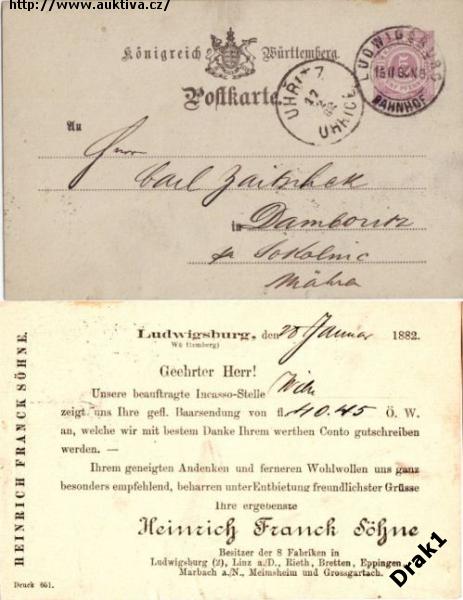 http://www.auktiva.cz/
Königreich Württemberg.
Postkarte
LUDWIGSBURG
BAHNHOF
5
UHŘITZ
UHŘICE
An
Herrn
Carl Zaitschek
in Damboritz
pr Sokolnic
Mähren
HEINRICH FRANCK SÖHNE.
Ludwigsburg, den 20 Januar 1882.
Württemberg)
Geehrter Herr!
Unsere beauftragte Incasso-Stelle Wien
zeigt uns Ihre gefl. Baarsendung von fl. 40.45 Ö. W.
an, welche wir mit bestem Danke Ihrem werthen Conto gutschreiben
werden. —
Ihrem geneigten Andenken und ferneren Wohlwollen uns ganz
besonders empfehlend, beharren unter Entbietung freundlichster Grüsse
Ihre ergebenste
Heinrich Franck Söhne
Besitzer der 8 Fabriken in
Ludwigsburg (2), Linz a./D., Rieth, Bretten, Eppingen,
Marbach a./N., Meimsheim und Grossgartach.
Druck 661.
Drak1